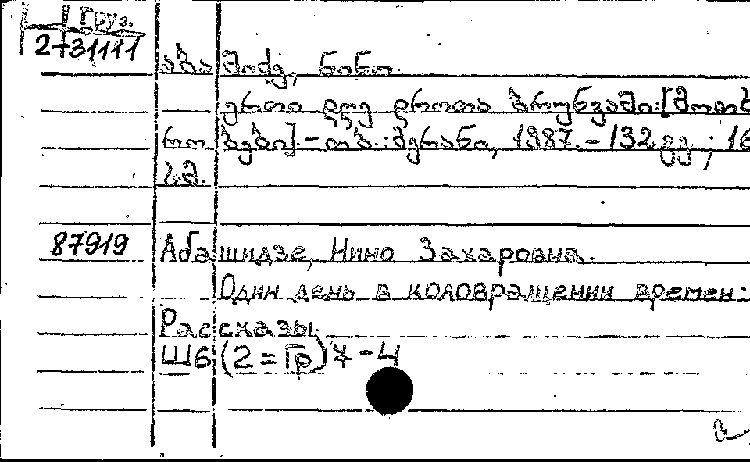 Груз.
2-31111
აბაშიძე, ნინო.
ერთი დღე დროთა ბრუნვაში: [მოთხ
რობები] - თბ.: მერანი, 1987. - 132 გვ; 16
სმ.
87919 Абашидзе, Нино Захаровна.
Один день в коловращении времен:
Рассказы.
Ш6(2=Гр)7-4